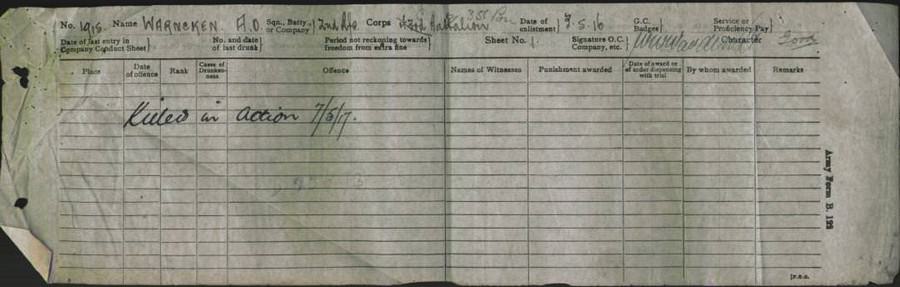 No. 1915 Name WARNCKEN. A.O. Sqn., Batty., or Company 2nd Corps Battalion Date of enlistment 3.5.16 G.C. Badges Service or Proficiency Pay
Date of last entry in Company Conduct Sheet No. and date of last drunk Period not reckoning towards freedom from extra fine Sheet No. 1. Signature O.C. Company, etc. Character Good
Place Date of offence Rank Cases of Drunkenness Offence Names of Witnesses Punishment awarded Date of award or of order dispensing with trial By whom awarded Remarks
Killed in Action 7/6/17.
Army Form B. 122
[P.T.O.